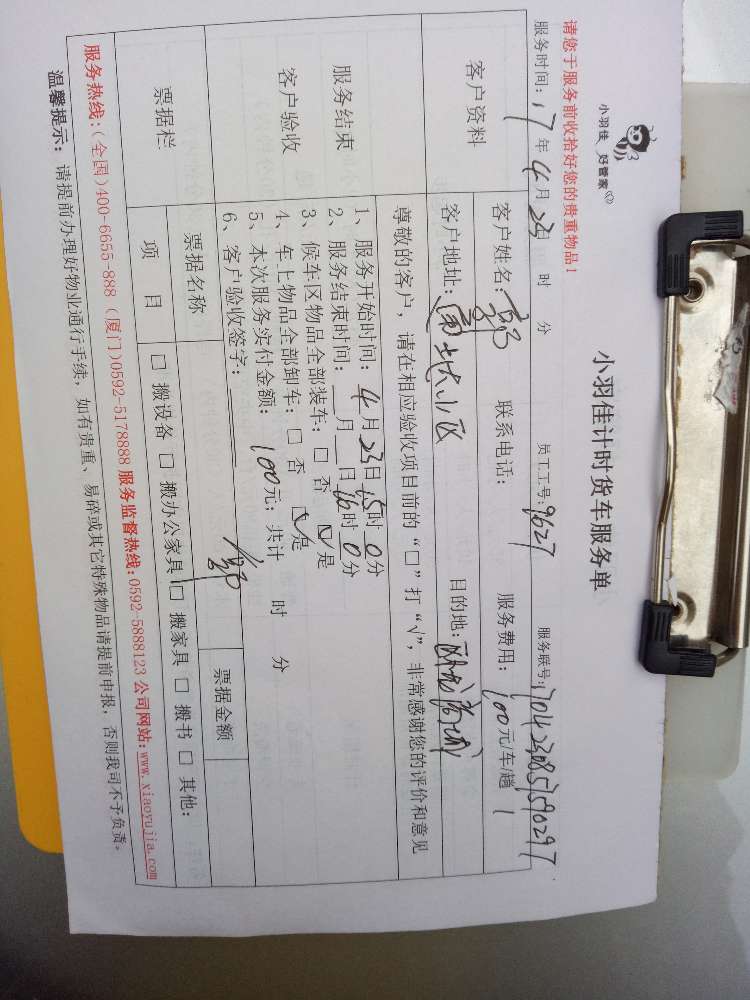 小羽佳 好管家
小羽佳计时货车服务单
请您于服务前收拾好您的贵重物品!
服务时间:17年4月23日 时 分 员工工号:9627 服务联号:
客户资料
客户姓名: 联系电话: 服务费用:100元/车/趟 1
客户地址: 小区 目的地:
尊敬的客户,请在相应验收项目前的“□”打“√”,非常感谢您的评价和意见
服务结束
客户验收
1、服务开始时间:4月23日15时0分
2、服务结束时间: 月 日16时0分
3、候车区物品全部装车:□否 ☑是
4、车上物品全部卸车:□否 ☑是
5、本次服务实付金额:100元;共计 时 分
6、客户验收签字:
票据栏 票据名称 票据金额
项 目 □ 搬设备 □ 搬办公家具 □ 搬家具 □ 搬书 □ 其他:
服务热线:(全国)400-6655-888 (厦门)0592-5178888 服务监督热线:0592-5888123 公司网站:www.xiaoyujia.com
温馨提示: 请提前办理好物业通行手续,如有贵重、易碎或其它特殊物品请提前申报,否则我司不予负责。